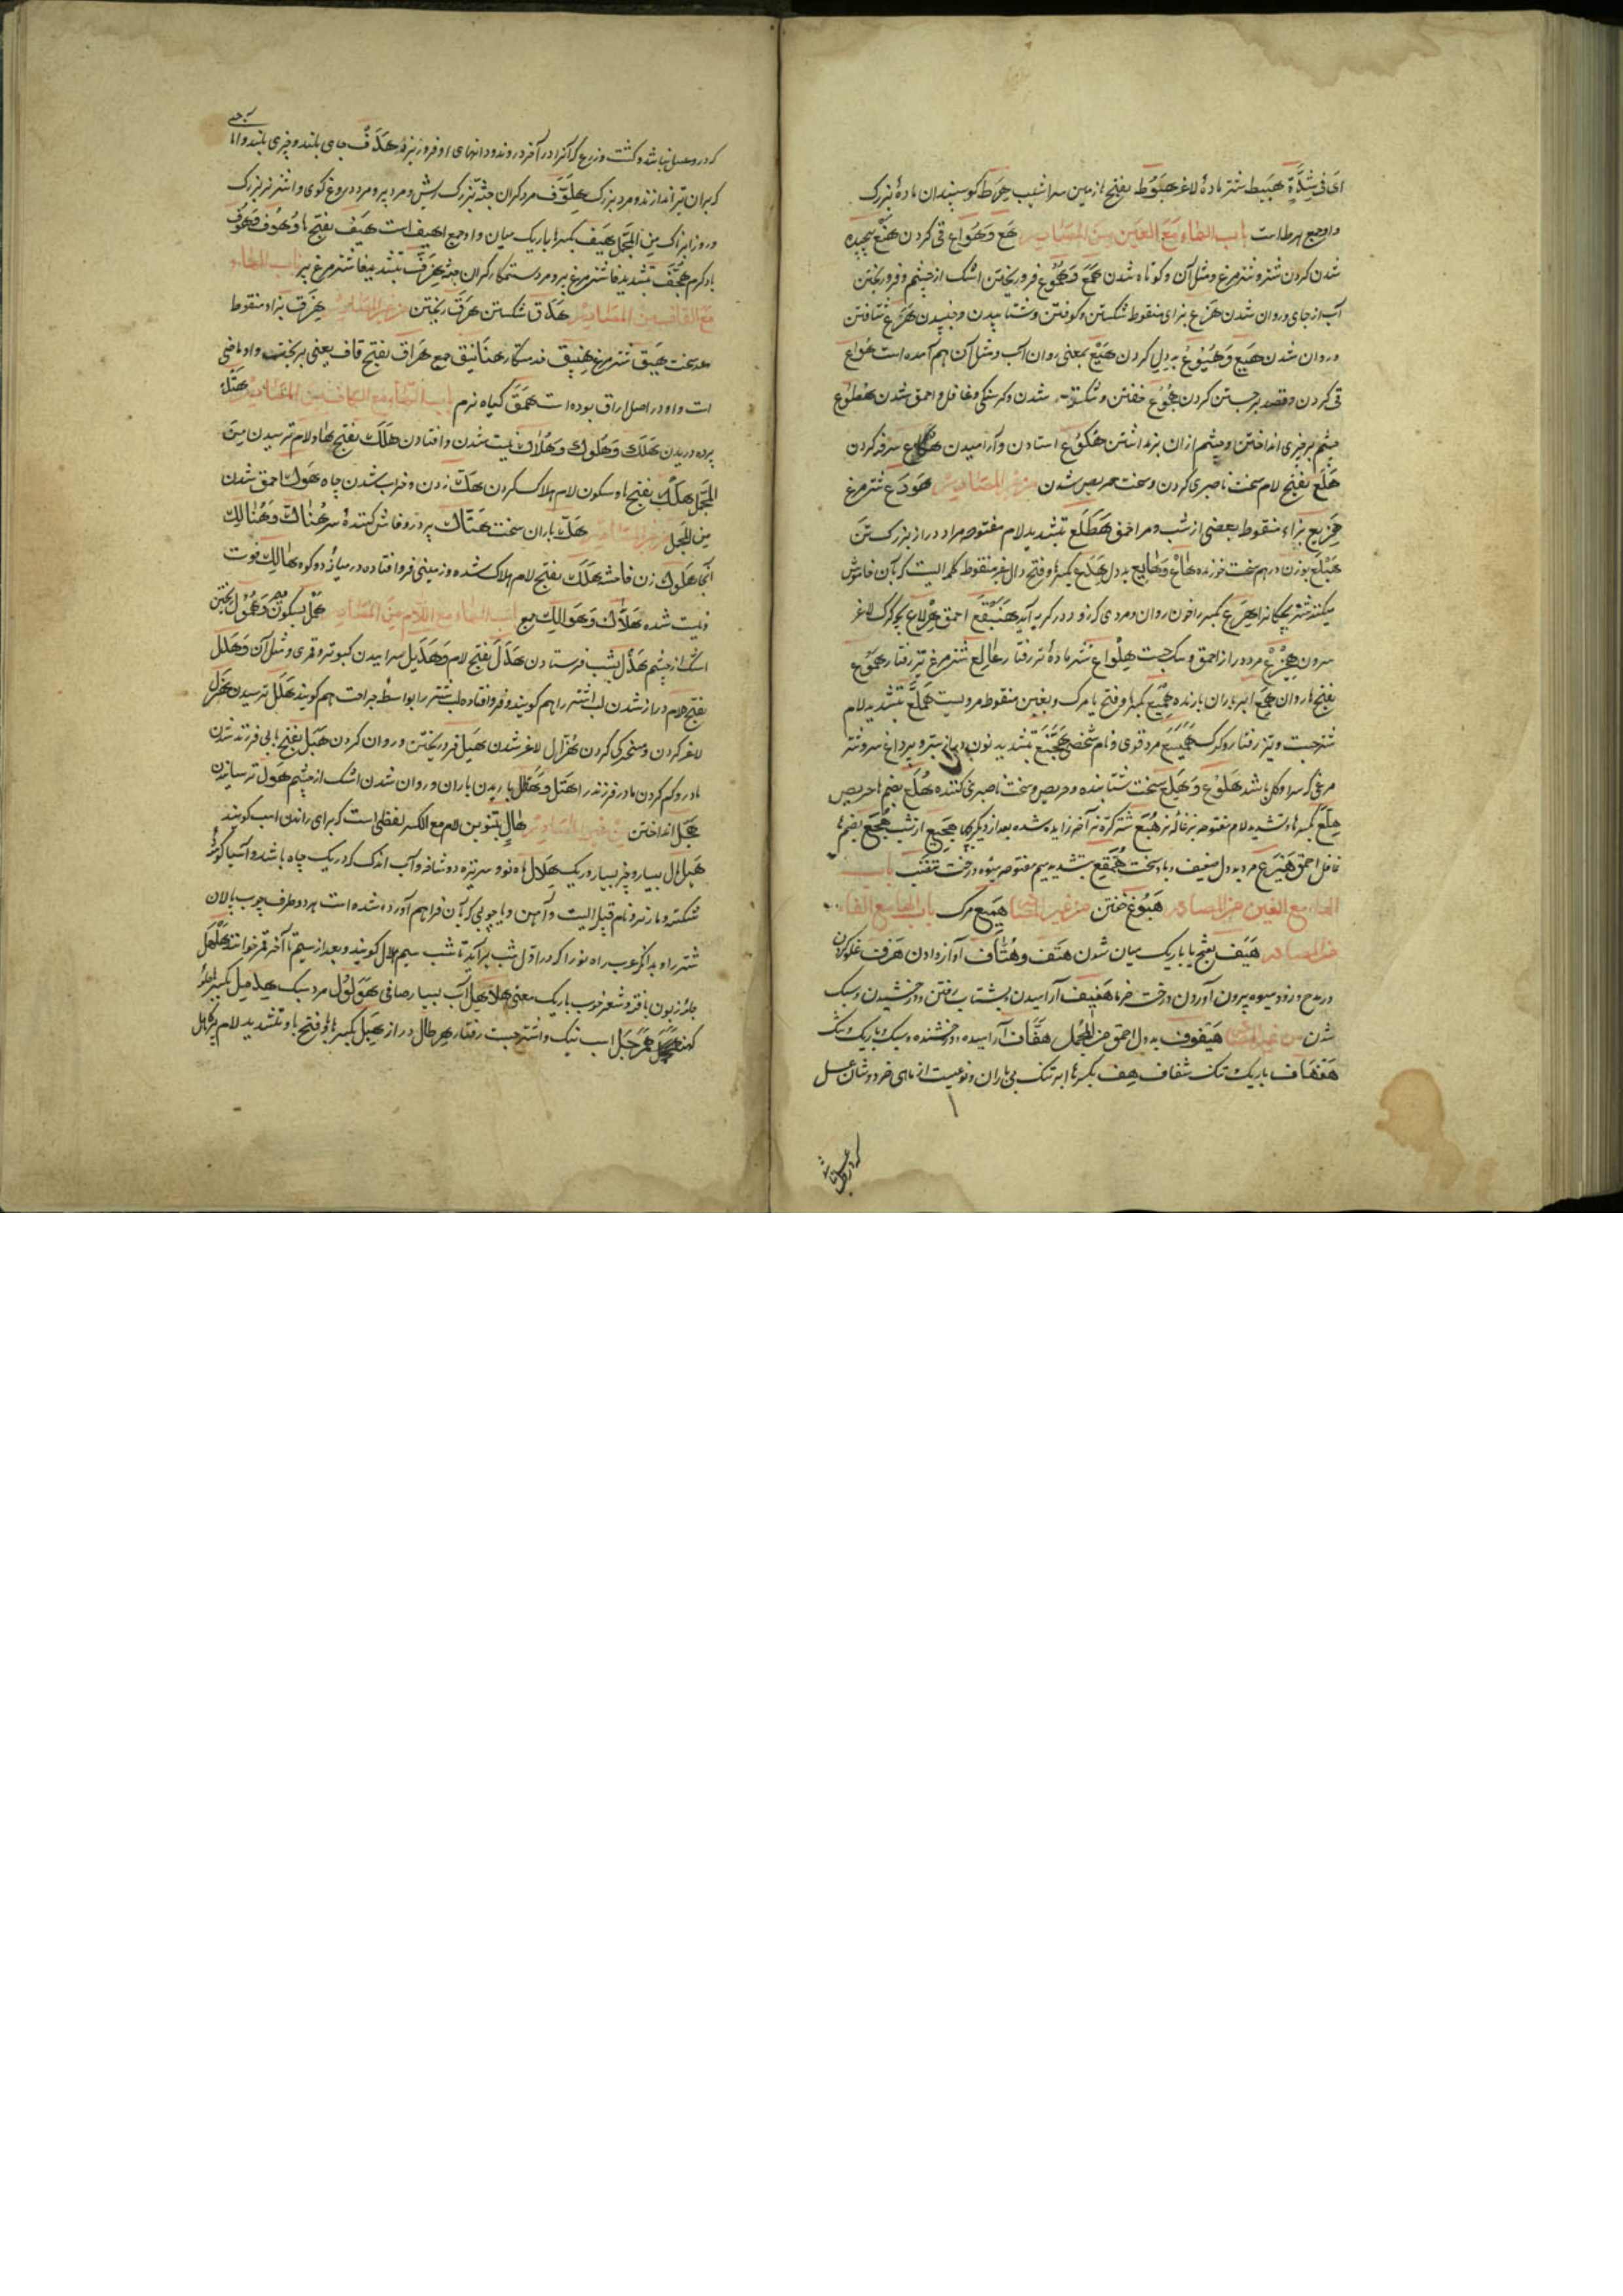 ای فی شِدَّةٍ هبیط شتر مادهٔ لاغر هبوط بفتح ها زمین سراشیب هرط کوسپندان مادهٔ بزرگ
و او جمع هرط است باب الهاء مع العین من المصادر هع و هُواع قی کردن هنع پیچیده
شدن کردن شتر و شترمرغ و مثل آن و کوتاه شدن همع و هموع فرو ریختن اشک از چشم و فرو ریختن
آب از جای و روان شدن هزع بزای منقوط شکستن و کوفتن و شتابیدن و جنبیدن هرع شتافتن
و روان شدن هیع و هیوع بد دلی کردن هیع بمعنی روان آب و مثل آن هم آمده است هواع
قی کردن و قصد برجستن کردن هجوع خفتن و شکسته شدن گرسنگی و غافل و احمق شدن هطوع
چشم بر چیزی انداختن و چشم از آن برنداشتن هکوع استادن و آرامیدن هکاع سرفه کردن
هلع بفتح لام سخت ناصبری کردن و سخت حریص شدن من غیر المصادر هودع شترمرغ
هزیع بزاء منقوط بعضی از شب و مرد احمق هطلع بتشدید لام مفتوحه مرد دراز بزرگ تن
هبلع بوزن درهم سخت خورنده هاع و هایع بد دل هدع بکسر ها و فتح دال غیر منقوط کلمه ایست که بآن خاموش
میکنند شتر بچکانرا هرع بکسر را خون روان و مردی که زود در گریه آید هنبقع احمق هرلاع بچه گرک لاغر
مرد دراز احمق و سک جست هلواع شتر مادهٔ تیز رفتار هطالع شترمرغ تیز رفتار هموع
بفتح ها روان همع ابر باران بارنده همیع بکسر ها و فتح یا مرک و بغین منقوط مرویست هملع بتشدید لام
شتر جست و تیز رفتار و گرک همیسع مرد قوی و نام شخصی هجنع بتشدید نون
مرغی که سر او کل باشد هلوع و هیلع سخت شتابنده و حریص و سخت ناصبری کننده هلع بضم ها حریص
هلع بکسر ها و تشدید لام مفتوحه بزغاله نر هبع شتر کره نر آخر زایده شده بعد از دیگری هجیع از شب هجع بضم ها
غافل احمق هیرع مرد بد دل ضعیف و باد سخت همقع بتشدید میم مفتوحه میوهٔ درخت تنضب باب
الهاء مع الغین من المصادر هبوغ خفتن من غیر المصادر همیع مرک باب الهاء مع الفاء
من المصادر هیف بفتح یا باریک میان شدن هتف و هتاف آواز دادن هرف غلو کردن
در مدح و زود میوه بیرون آوردن درخت خرما هفیف آرامیدن و بشتاب رفتن و درخشیدن و سبک
شدن من غیر المصادر هیفوف بد دل احمق من المجمل هفاف آرامیده و درخشنده و سبک و باریک و تنک
هفهاف باریک و تنک شفاف هف بکسر ها ابر تنک بی باران و نوعیست از ماهی خرد و شان عسل
که در و عسل نباشد و کشت و زرع که آنرا در آخر درو ند و دانهای او فرو ریزد هدف جای بلند و چیزی بلند و اما
که بران تیر اندازند و مرد بزرگ هلوف مرد گران جثه بزرگ ریش و مرد پیر و مرد دروغ گوی و اشتر نر بزرگ
و روز ابرناک من المجمل هیف بکسر ها باریک میان و او جمع اهیف است هیف بفتح ها و هوف
باد گرم هجف بتشدید فا شترمرغ پیر و مرد ستمکار گران جثه هزف بتشدید فا شترمرغ پیر باب الهاء
مع القاف من المصادر هدق شکستن هرق ریختن من غیر المصادر هزق بزاء منقوط
رعد سخت هیق شترمرغ هنیق خدمتکار هنانیق جمع هراق بفتح قاف یعنی بریخت و او ماضی
است و او در اصل اراق بوده است همق گیاه نرم باب الهاء مع الکاف من المصادر هتک
پرده دریدن هلک و هلوک و هلاک نیست شدن و افتادن هلک بفتح ها و لام ترسیدن من
المجمل هلک بفتح ها و سکون لام هلاک کردن هک زدن و خراب شدن چاه هوک احمق شدن
من المجمل من غیر المصادر هک باران سخت هتاک پرده در و فاش کنندهٔ سر هناک و هنالک
آنجا هلوک زن فاحشه هلک بفتح لام هلاک شده و زمینی فرو افتاده در میانهٔ دو کوه هالک فوت
و نیست شده هلاک و هوالک جمع باب الهاء مع اللام من المصادر همل بسکون و همول ریختن
اشک از چشم هدل بشب فرستادن هدل بفتح لام و هدیل سراییدن کبوتر و قمری و مثل آن و هدل
بفتح لام دراز شدن لب اشتر را هم گویند و فرو افتاده لب شتر را بواسطهٔ جراحت هم گویند هلل ترسیدن هزل
لاغر کردن و مسخرکی کردن هزال لاغر شدن هیل فرو ریختن و روان کردن هبل بفتح با بی فرزند شدن
مادر و گم کردن مادر فرزند را هتل و هتال باریدن باران و روان شدن اشک از چشم هول ترسانیدن
هجل انداختن من غیر المصادر هال بتنوین لام مع الکسر لفظی است که برای راندن اسب گویند
هیل مال بسیار و چیز بسیار و ریک هلال ماه نو و سر نیزه دو شاخه و آب اندک که در یک چاه باشد و آسیا گوشه
شکسته و مار نر و نام قبیله ایست و آهن و یا چوبی که بآن فراهم آورده شده است هر دو طرف چوب پالان
شتر را و بدانکه عرب ماه نو را که در اول شب بر آید تا شب سیم هلال گویند و بعد از سیم تا آخر قمر خوانند هلهل
جامهٔ زبون بافته و شعر خوب باریک معنی هلاهل آب بسیار صافی هولول مرد سبک هدمل بکسر ها جامه
کهنه هرجل اسب نیک و اشتر جست رفتار هرطال دراز هبل بکسر ها و فتح با و تشدید لام